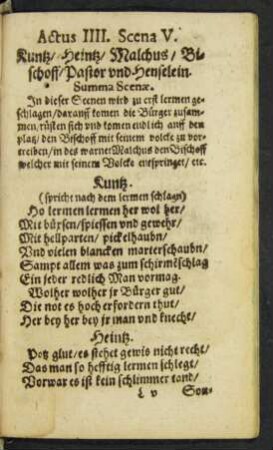 Actus IIII. Scena V.
Kuntz/ Heintz/ Malchus/ Bi-
schoff/ Pastor vnd Henselein.
Summa Scenæ.
In dieser Scenen wird zu erst lermen ge-
schlagen/ darauff komen die Bürger zusam-
men/ rüsten sich vnd komen endlich auff den
platz/ den Bischoff mit seinem volcke zu vor-
treiben/ in des warnet Malchus den Bischoff
welcher mit seinem Volcke entspringet/ etc.
Kuntz.
(spricht nach dem lermen schlagn)
Ho lermen lermen her wol her/
Mit bürsen/ spiessen vnd gewehr/
Mit hellparten/ pickelhaubn/
Vnd vielen blancken marterschaubn/
Sampt allem was zum schirmeschlag
Ein jeder redlich Man vormag.
Wolher wolher jr Bürger gut/
Die not es hoch erfordern thut/
Her bey her bey jr man vnd knecht/
Heintz.
Potz glut/ es stehet gewis nicht recht/
Das man so hefftig lermen schlegt/
Vorwar es ist kein schlimmer tand/
L v Son-